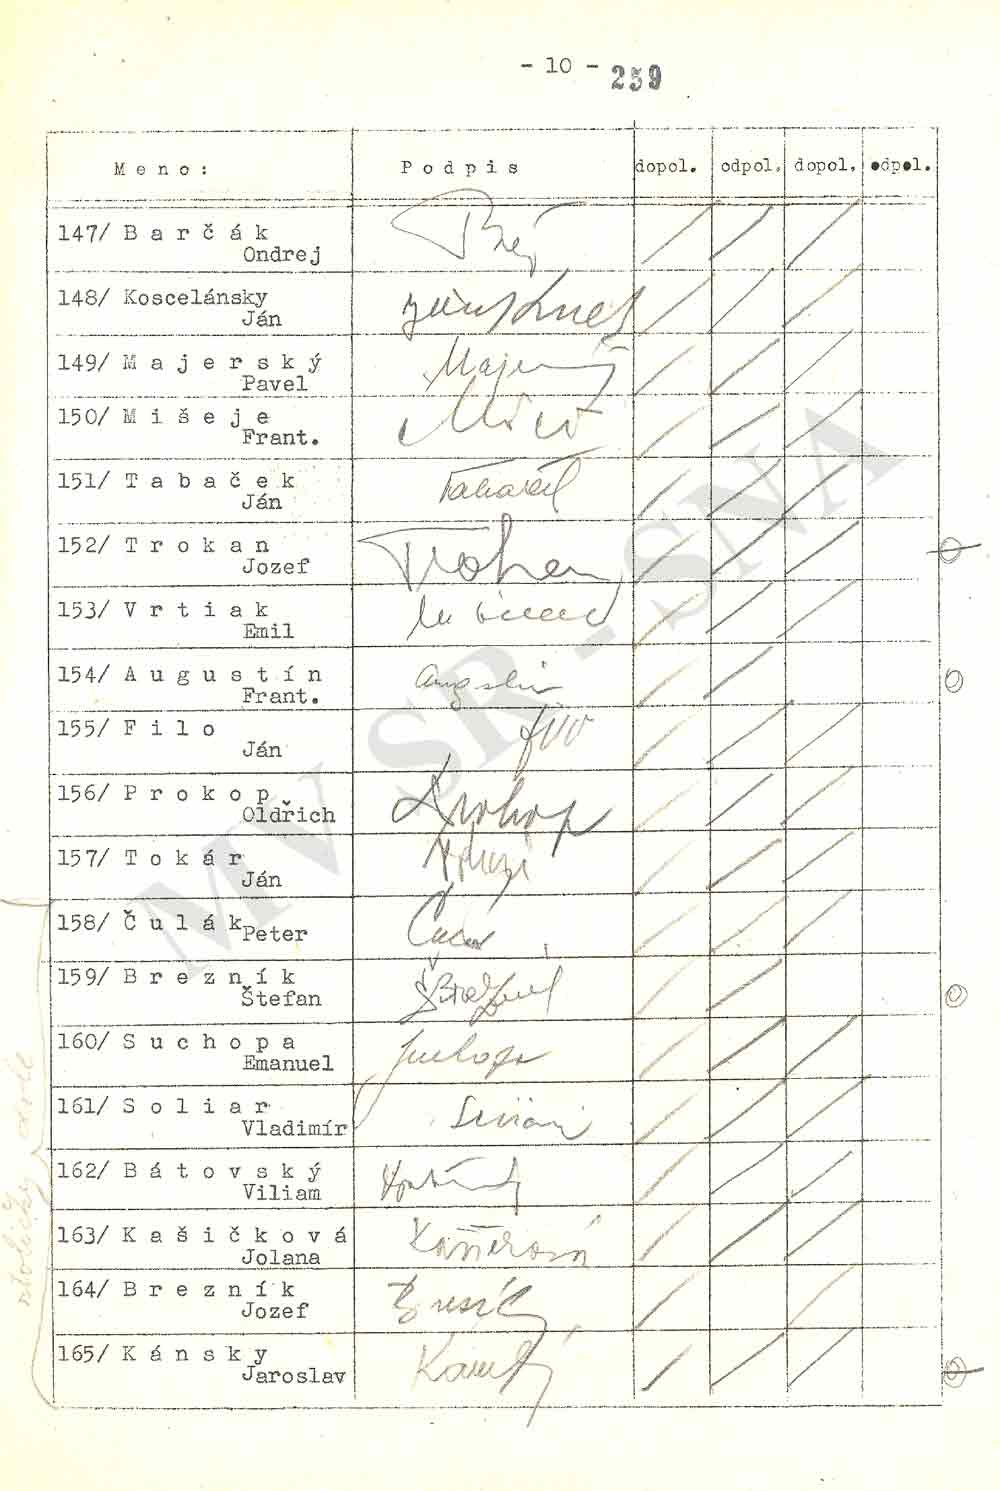 - 10 - 259
Meno: Podpis dopol. odpol. dopol. odpol.
147/ Barčák
Ondrej
148/ Koscelánsky
Ján
149/ Majerský
Pavel
Majerský
150/ Mišeje
Frant.
151/ Tabaček
Ján
Tabaček
152/ Trokan
Jozef
Trokan
153/ Vrtiak
Emil
154/ Augustín
Frant.
Augustin
155/ Filo
Ján
Filo
156/ Prokop
Oldřich
Prokop
157/ Tokár
Ján
158/ Čulák
Peter
159/ Brezník
Štefan
160/ Suchopa
Emanuel
Suchopa
161/ Soliar
Vladimír
162/ Bátovský
Viliam
163/ Kašičková
Jolana
164/ Brezník
Jozef
165/ Kánsky
Jaroslav
Kánsky
MV SR - SNA